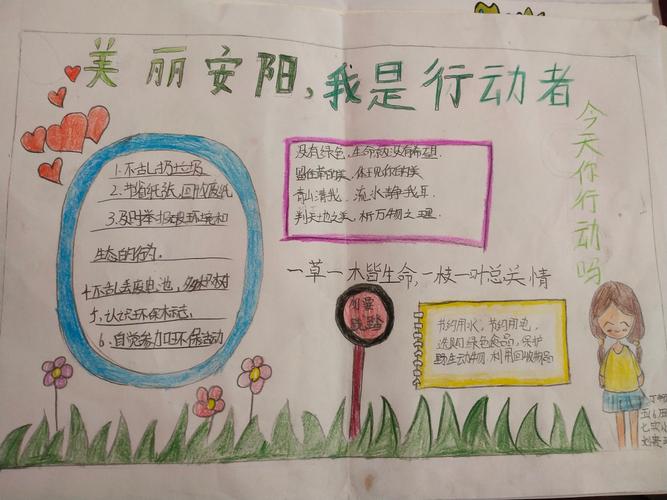 美丽安阳,我是行动者
今天你行动吗
1.不乱扔垃圾
2.节省纸张,回收废纸
3.及时举报破坏环境和
生态的行为.
4.不乱丢废电池,多种树
5、认识环保标志.
6、自觉参加环保活动
没有绿色,生命就没有希望.
留住草的美,
青山清我目,流水静我耳.
判天地之美,析万物之理.
一草一木皆生命,一枝一叶总关情
勿
践踏
节约用水,节约用电,
选购绿色食品,保护
野生动物,利用回收物品